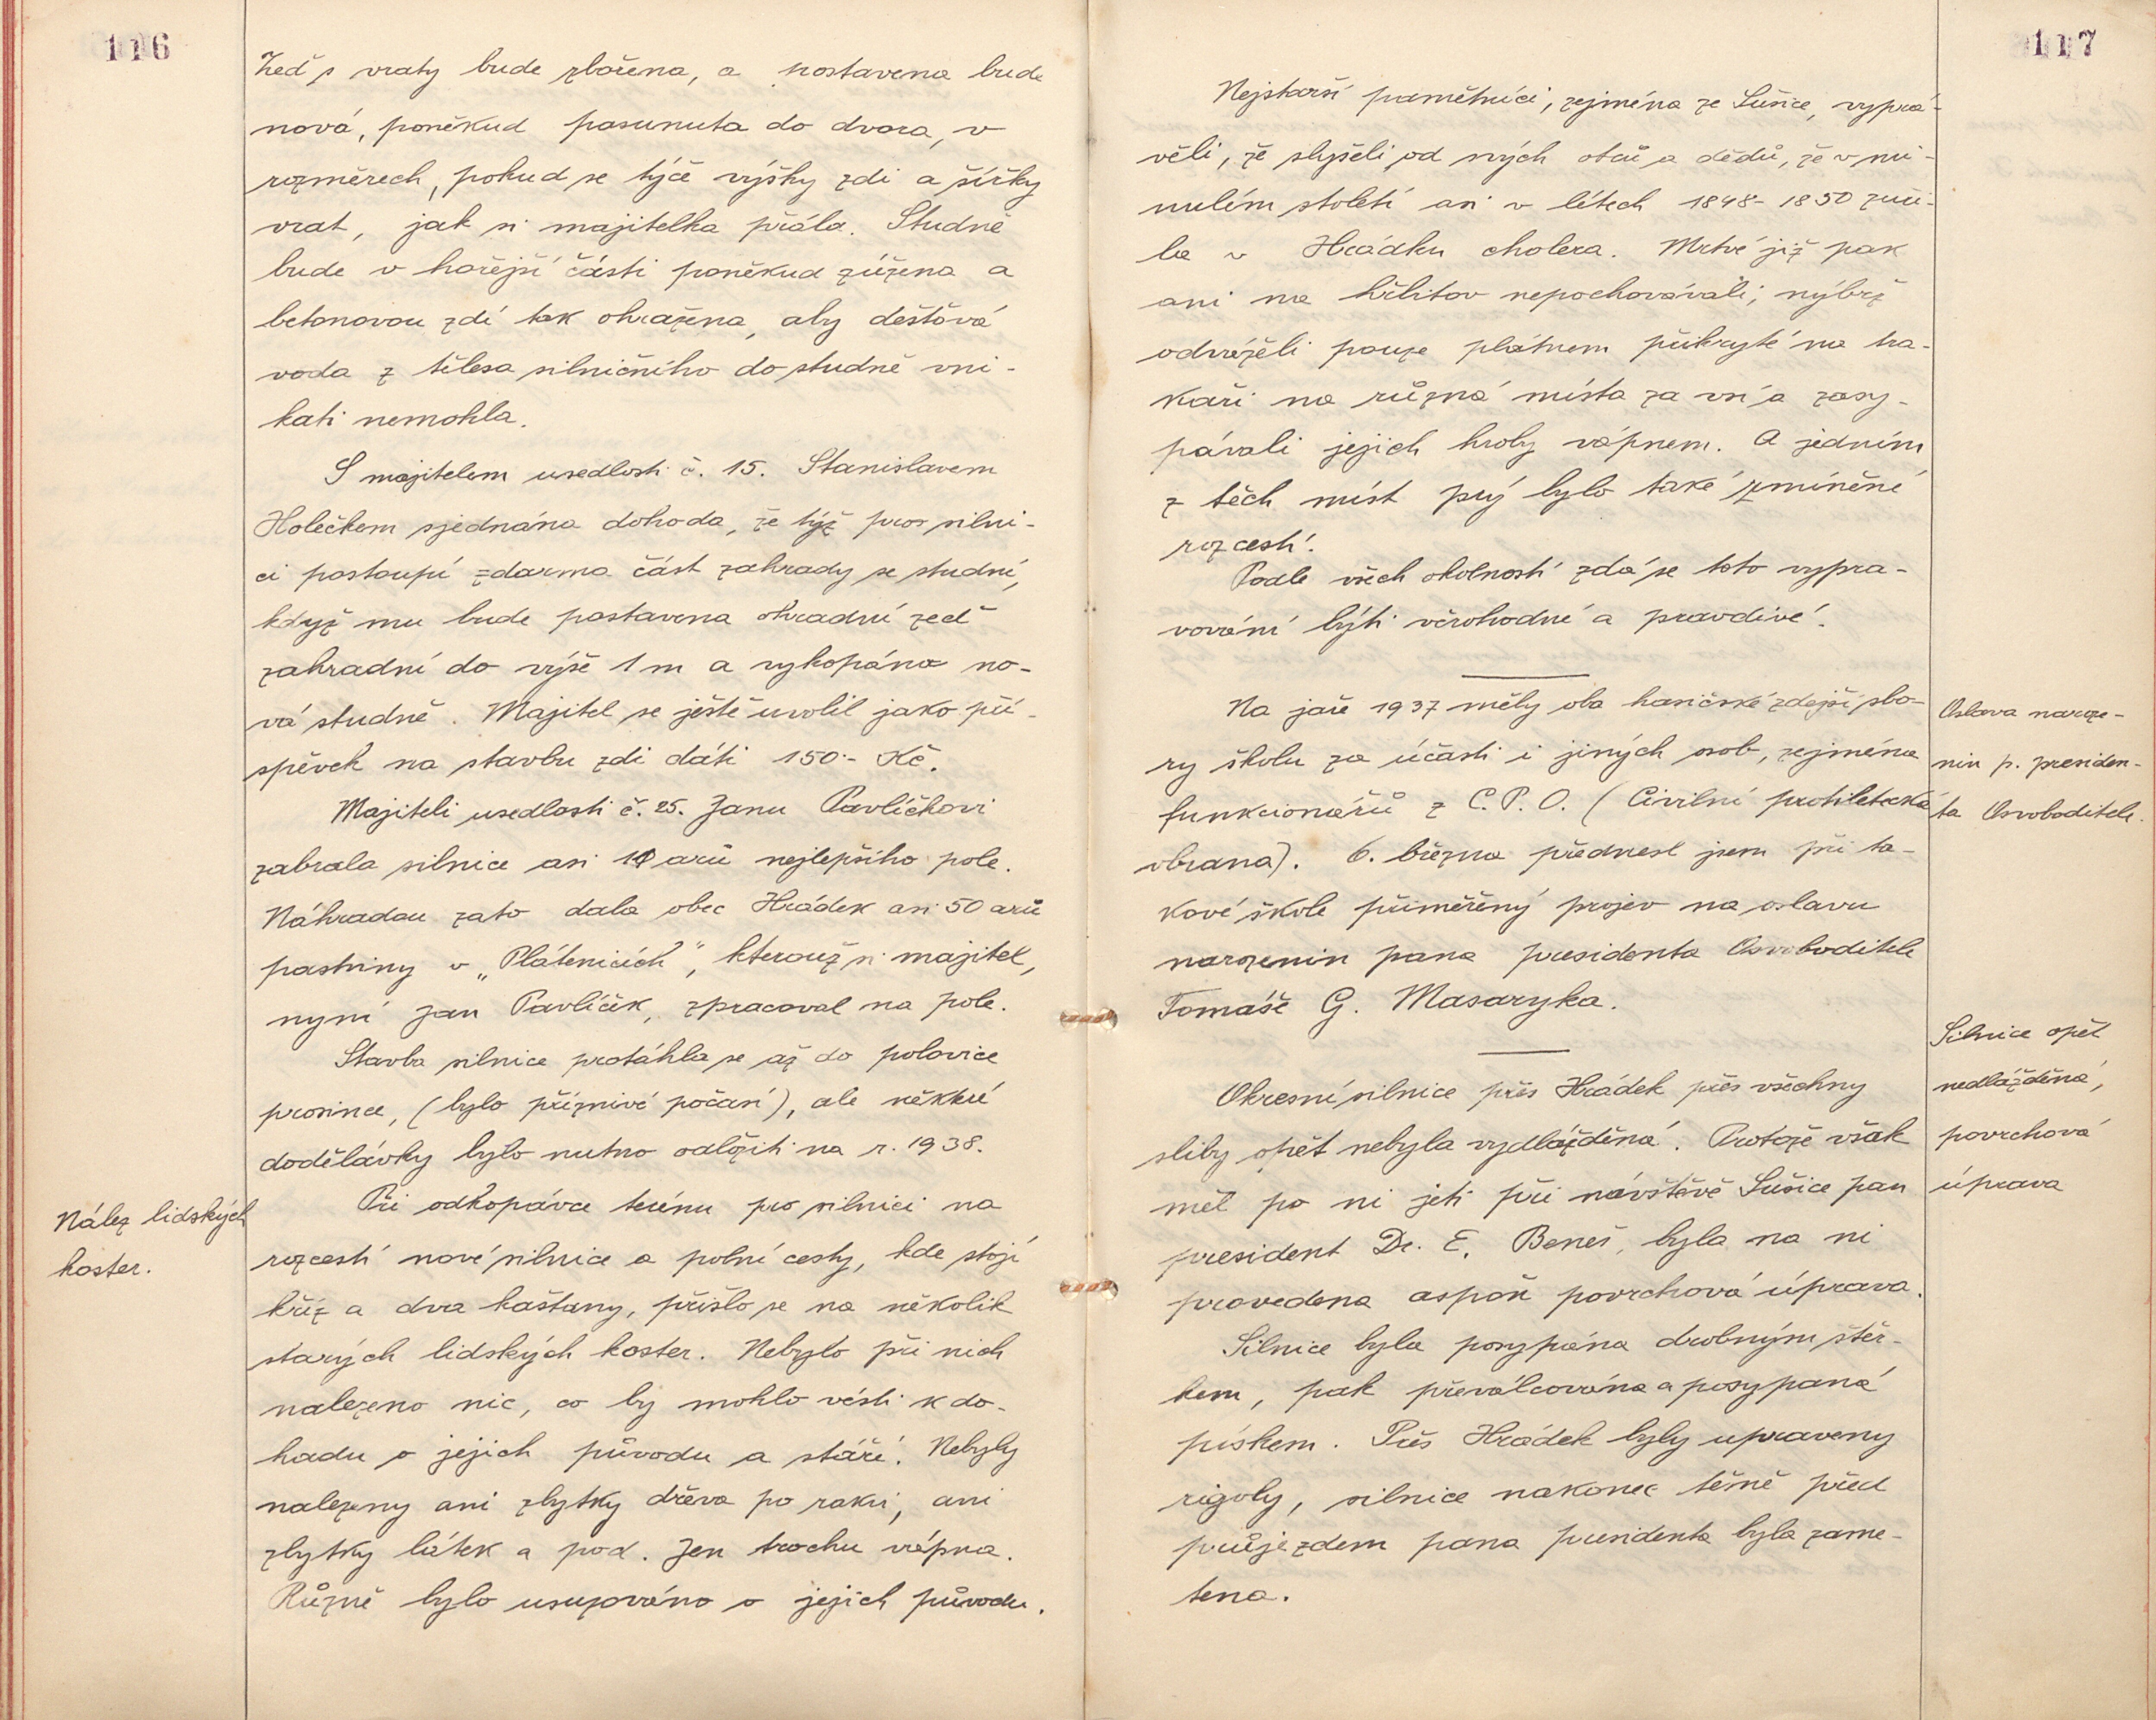 116
Zeď s vraty bude zbořena, a postavena bude
nová, poněkud posunuta do dvora, v
rozměrech, pokud se týče výšky zdi a šířky
vrat, jak si majitelka přála. Studně
bude v hořejší části poněkud zúžena a
betonovou zdí tak ohražena, aby dešťová
voda z tělesa silničního do studně vni-
kati nemohla.
S majitelem usedlosti č. 15. Stanislavem
Holečkem sjednána dohoda, že týž pro silni-
ci postoupí zdarma část zahrady se studní,
když mu bude postavena ohradní zeď
zahradní do výše 1 m a vykopána no-
vá studně. Majitel se ještě uvolil jako pří-
spěvek na stavbu zdi dáti 150·- Kč.
Majiteli usedlosti č. 25. Janu Pavlíčkovi
zabrala silnice asi 10 arů nejlepšího pole.
Náhradou zato dala obec Hrádek asi 50 arů
pastviny v „Plátenicích“, kterouž si majitel,
nyní Jan Pavlíček, zpracoval na pole.
Stavba silnice protáhla se až do polovice
prosince, (bylo příznivé počasí), ale někké
dodělávky bylo nutno odložiti na r. 1938.
Nález lidských
koster.
Při odkopávce terénu pro silnici na
rozcestí nové silnice a polní cesty, kde stojí
kříž a dva kaštany, přišlo se na několik
starých lidských koster. Nebylo při nich
nalezeno nic, co by mohlo vésti k do-
hadu o jejich původu a stáří. Nebyly
nalezeny ani zbytky dřeva po rakvi, ani
zbytky látek a pod. Jen trochu vápna.
Různě bylo usuzováno o jejich původu.
117
Nejstarší pamětníci, zejména ze Sušice, vyprá-
věli, že slyšeli od svých otců a dědů, že v mi-
nulém století asi v létech 1848-1850 zuři-
la v Hrádku cholera. Mrtvé již pak
ani na hřbitov nepochovávali, nýbrž
odváželi pouze plátnem přikryté na tra-
kaři na různá místa za vsí a zasy-
pávali jejich hroby vápnem. A jedním
z těch míst prý bylo také zmíněné
rozcestí.
Podle všech okolností zdá se toto vypra-
vování býti věrohodné a pravdivé.
Na jaře 1937 měly oba hasičské zdejší sbo-
ry školu za účasti i jiných osob, zejména
funkcionářů z C. P. O. (Civilní protiletecká
obrana). 6. března přednesl jsem při ta-
kové škole přiměřený projev na oslavu
narozenin pana presidenta Osvoboditele
Tomáše G. Masaryka.
Oslava naroze-
nin p. presiden-
ta Osvoboditele.
Okresní silnice přes Hrádek přes všechny
sliby opět nebyla vydlážděna. Protože však
měl po ní jeti při návštěvě Sušice pan
president Dr. E. Beneš, byla na ní
provedena aspoň povrchová úprava.
Silnice byla posypána drobným štěr-
kem, pak převálcována a posypaná
pískem. Přes Hrádek byly upraveny
rigoly, silnice nakonec těsně před
průjezdem pana presidenta byla zame-
tena.
Silnice opět
nedlážděná,
povrchová
úprava